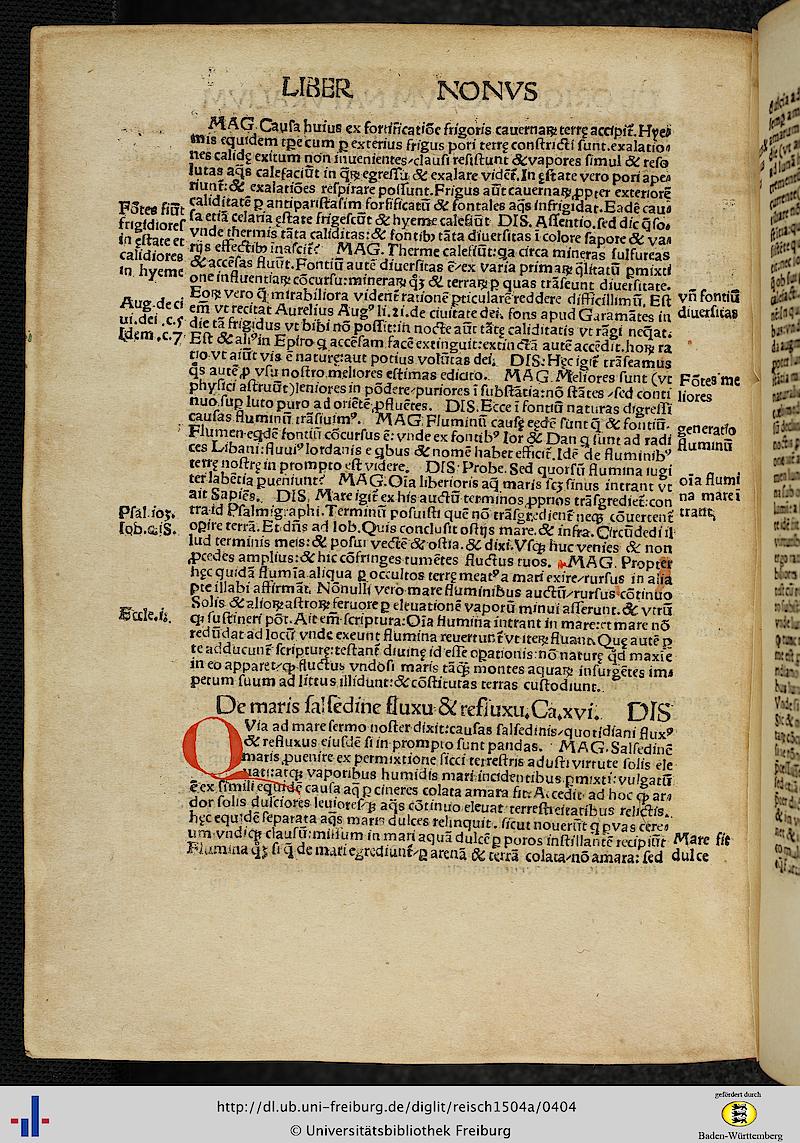 LIBER NONVS
MAG. Causa huius ex fortificatiõe frigoris cauernaꝝ terrę accipit̃. Hye⸗
mis equidem tp̃e cum ꝑ exterius frigus pori terrę constricti sunt. exalatio⸗
nes calidę exitum non inuenientes/clausi resistunt & vapores simul & reso
lutas aq̃s calefaciũt in q̃ꝝ egressu & exalare vidēt̃. In ęstate vero pori ape⸗
riunt̃: & exalatiões respirare possunt. Frigus aũt cauernaꝝ ꝓpter exteriorẽ
caliditatẽ ꝑ antiparistasim forsificatũ & fontales aq̃s infrigidat. Eadẽ cau⸗
sa etiã celaria ęstate frigescũt & hyeme calefiũt DIS. Assentio. sed dic q̃so.
vnde thermis tãta caliditas: & fontibꝰ tãta diuersitas ĩ colore sapore & va⸗
rijs effectibꝰ inascit̃? MAG. Therme calefiũt: qa circa mineras sulfureas
& accẽsas fluũt. Fontiũ autẽ diuersitas ẽ/ex varia primaꝝ q̃litatũ ꝑmixti
one influentiaꝝ cõcursu: mineraꝝ qꝫ & terraꝝ ꝑ quas trãseunt diuersitate.
Eoꝝ vero q̃ mirabiliora vident̃ rationẽ ꝑticularẽ reddere difficillimũ. Est
em̃ vt recitat Aurelius Augꝰ li. 21. de ciuitate dei. fons apud Garamãtes in
die tã frigidus vt bibi nõ possit: in nocte aũt tãtę caliditatis vt tãgi neq̃at.
Est & aliꝰ in Epiro q̃ accẽsam facẽ extinguit: extinctã autẽ accẽdit. hoꝝ ra
tio vt aiũt vis ẽ naturę: aut potius volũtas dei. DIS: Hęc igit̃ trãseamus
q̃s autẽ ꝓ vsu nostro meliores ęstimas edicito. MAG. Meliores sunt (vt
physici astruũt) leniores in põdere/puriores ĩ substãtia: nõ stãtes/sed conti
nuo suꝑ luto puro ad oriẽtẽ ꝓfluẽtes. DIS. Ecce ĩ fontiũ naturas digressi
causas fluminũ trãsiuimꝰ. MAG. Fluminũ causę eędẽ sunt q̃ & fontiũ.
Flumen eqdẽ fontiũ cõcursus ẽ: vnde ex fontibꝰ Ior & Dan q sunt ad radi
ces Libani: fluuiꝰ Iordanis e qbus & nomẽ habet efficit̃. Idẽ de fluminibꝰ
terrę nostrę in prompto est videre. DIS. Probe. Sed quorsũ flumina iugi
ter labẽtia ꝑueniunt? MAG. Oĩa liberioris aq̃ maris scꝫ sinus intrant vt
ait Sapiẽs. DIS. Mare igit̃ ex his auctũ terminos ꝓprios trãsgrediet̃: con
tra id Psalmigraphi. Terminũ posuisti quẽ nõ trãsgredient̃ neqꝫ cõuertent̃
opire terrã. Et dñs ad Iob. Quis conclusit ostijs mare. & infra. Circũdedi il
lud terminis meis: & posui vectẽ & ostia. & dixi. Vsqꝫ huc venies & non
ꝓcedes amplius: & hic cõfringes tumẽtes fluctus tuos. MAG. Propter
hęc quidã flumĩa aliqua ꝑ occultos terrę meatꝰ a mari exire/rursus in alia
ꝑte illabi affirmãt. Nõnulli vero mare fluminibus auctũ/rursus cõtinuo
Solis & alioꝝ astroꝝ feruore ꝑ eleuationẽ vaporũ minui asserunt. & vtrũ
qꝫ sustineri põt. Ait em̃ scriptura: Oĩa flumina intrant in mare: et mare nõ
redũdat ad locũ vnde exeunt flumina reuertunt̃ vt iteꝝ fluant. Quę autẽ ꝑ
te adducunt̃ scripturę: testant̃ diuinę id esse opationis: nõ naturę q̃d maxiẽ
in eo apparet/qꝙ fluctus vndosi maris tãqꝫ montes aquaꝝ insurgẽtes im⸗
petum suum ad littus illidunt: & cõstitutas terras custodiunt.
De maris salsedine fluxu & refluxu. Ca. xvi. DIS
QVia ad mare sermo noster dixit: causas salsedinis/quotidiani fluxꝰ
& refluxus eiusdẽ si in prompto sunt pandas. MAG. Salsedinẽ
maris ꝓuenire ex permixtione sicci terrestris adusti virtute solis ele
uati: atqꝫ vaporibus humidis mari incidentibus ꝑmixti: vulgatũ
ẽ ex simili equidẽ causa aq̃ ꝑ cineres colata amara fit. Accedit ad hoc qꝙ ar⸗
dor solis dulciores leuioresqꝫ aq̃s cõtinuo eleuat terrestreitatibus relictis.
hęc equidẽ separata aq̃s maris dulces relinquit. sicut nouerũt q ꝑ vas cere⸗
um vndiqꝫ clausũ: missum in mari aquã dulcẽ ꝑ poros instillantẽ recipiũt
Flumina qꝫ si q̃ de mari egrediunt̃/ꝑ arenã & terrã colata/nõ amara: sed
Fõtes fiũt
frigidiores
in ęstate et
calidiores
in hyeme
Aug. de ci
ui. dei .c. 5
Idem .c. 7
Psal. 103.
Iob. 38.
Eccle. i.
vñ fontiũ
diuersitas
Fõtes me
liores
generatio
fluminũ
oĩa flumi
na mare ĩ
trant
Mare fit
dulce
http://dl.ub.uni-freiburg.de/diglit/reisch1504a/0404
© Universitätsbibliothek Freiburg
gefördert durch
Baden-Württemberg